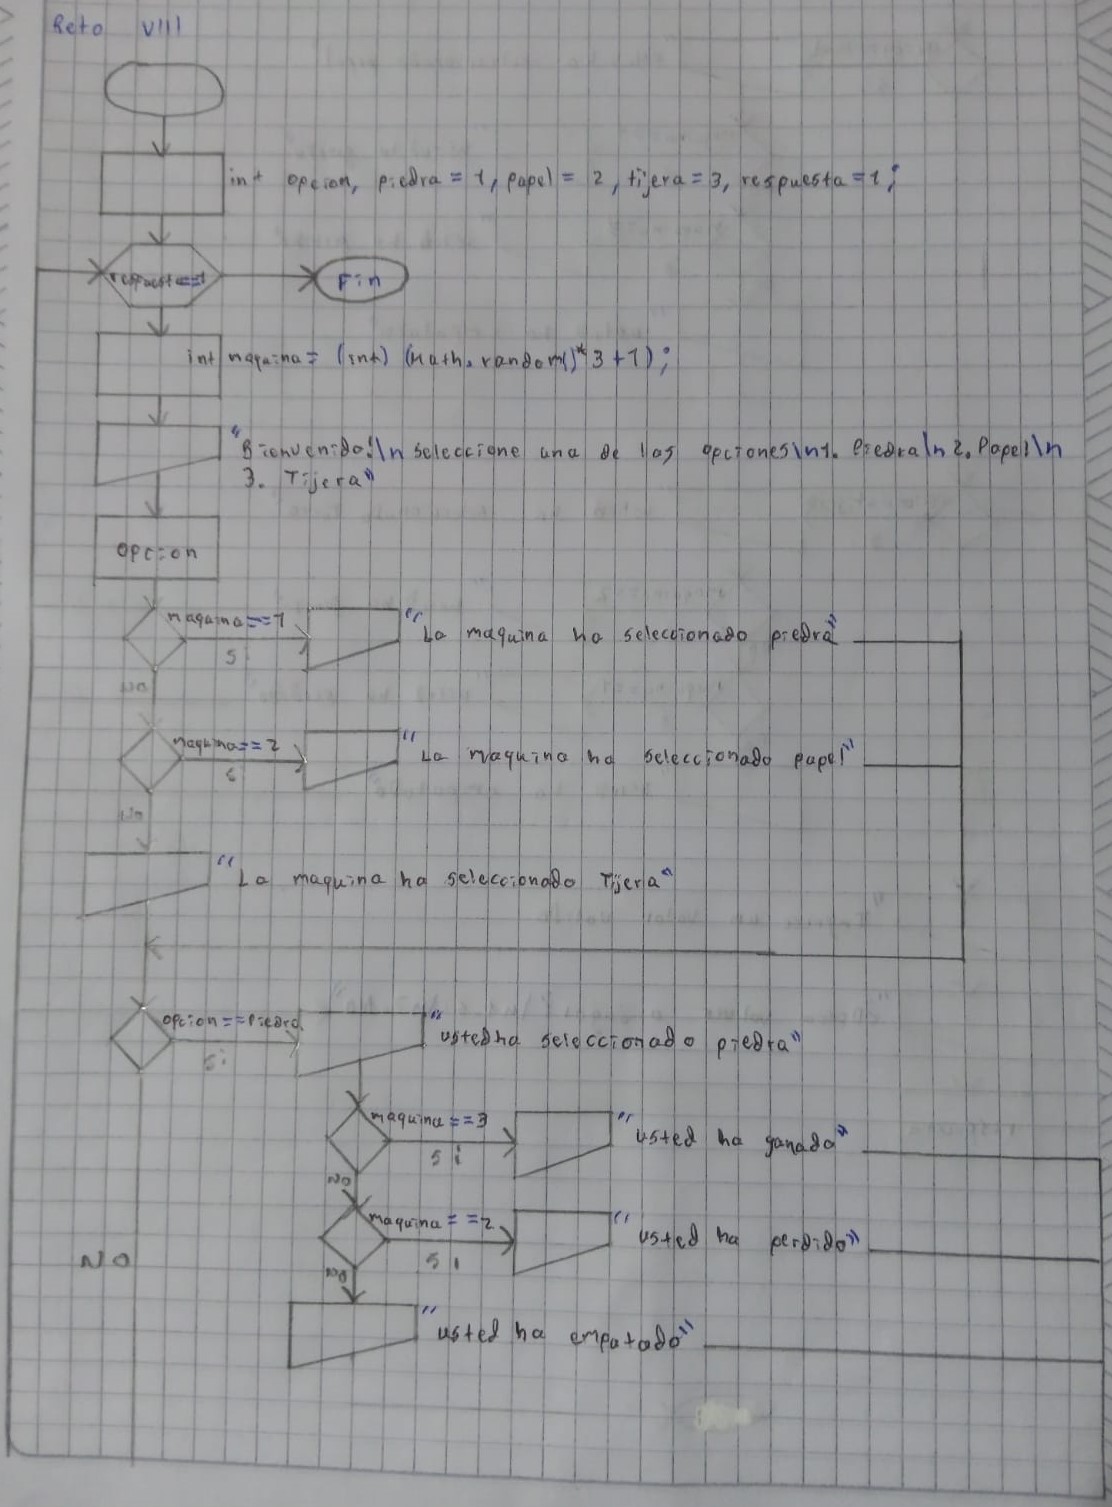 Reto VIII
int opcion, piedra = 1, papel = 2, tijera = 3, respuesta = 1;
respuesta==1
Fin
int maquina = (int) (Math.random()*3+1);
"Bienvenido!\n seleccione una de las opciones\n1. Piedra\n2. Papel\n
3. Tijera"
opcion
maquina==1
"La maquina ha seleccionado piedra"
si
no
maquina==2
"La maquina ha seleccionado papel"
si
no
"La maquina ha seleccionado Tijera"
opcion==Piedra
"usted ha seleccionado piedra"
si
maquina==3
"usted ha ganado"
si
no
maquina==2
"usted ha perdido"
si
NO
no
"usted ha empatado"